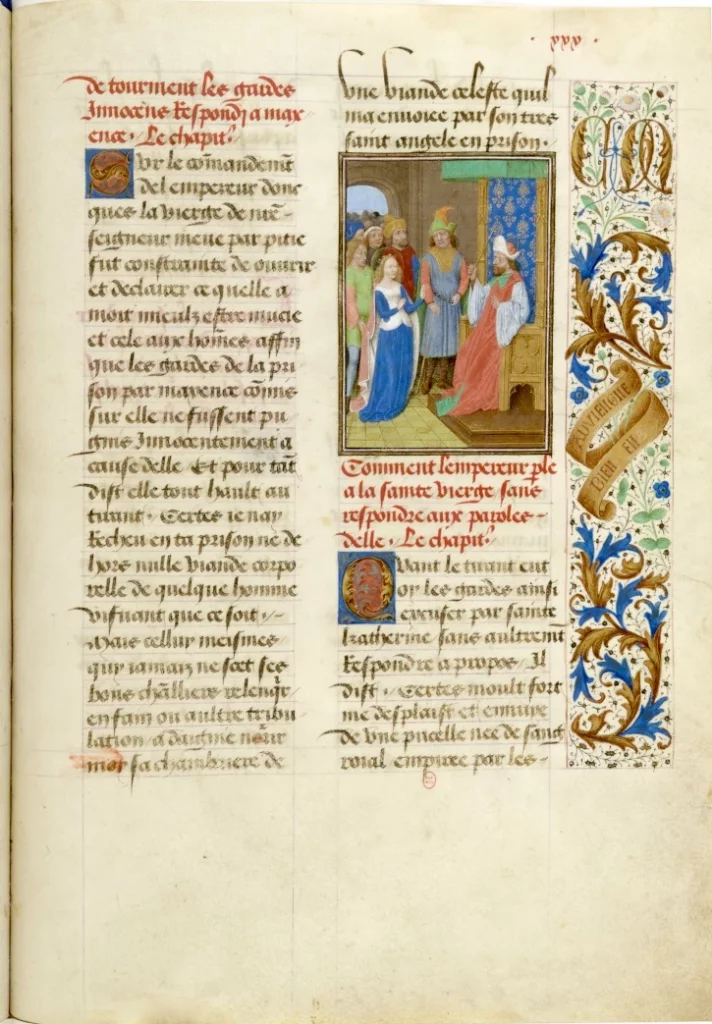 xxx
de tourment les gardes
Innocens Respondi a max
ence. Le chapit̓
Sur le com̄andemēt
del empereur donc
ques la vierge de nr̄e-
seigneur meue par pitie
fut constrainte de ouurir
et declairer ce quelle a
moit mieulz estre mucie
et cele aux hōmes affin
que les gardes de la pri
son par maxence cōmis
sur elle ne fussent pu
gnis Innocentement a
cause delle Et pour tāt
dist elle tout hault au
tirant. Certes ie nay
Recheu en ta prison ne de
hors nulle viande corpo
relle de quelque homme
viuant que ce soit
Mais celluy meismes
quy iamaiz ne scet ses
bons chl̄liers relenqr̄
en fain ou aultre tribu
lation a daigne nourir
moy sa chambriere de
vne viande celeste quil
ma enuoiee par son tres
saint angele en prison.
Comment lempereur ple
a la sainte vierge sans
respondre aux paroles-
delle. Le chapit̓
Quant le tirant eut
oy les gardes ainsi
excuser par sainte
katherine sans aultremt̄
Respondre a propos Il
dist. Certes moult fort
me desplaist et ennuye
de vne pucelle nee de sang
roial empiree par les-
Aduiengne
bien en